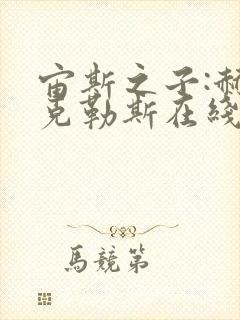 宙斯之子:赫
克勒斯在綫
馬競第